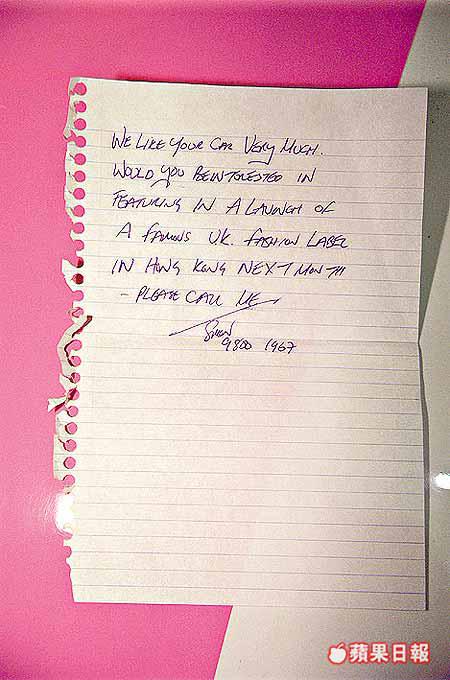 WE LIKE YOUR CAR VERY MUCH.
WOULD YOU BE INTERESTED IN
FEATURING IN A LAUNCH OF
A FAMOUS UK. FASHION LABEL
IN HONG KONG NEXT MONTH
- PLEASE CALL ME
9800 1967
蘋果日報